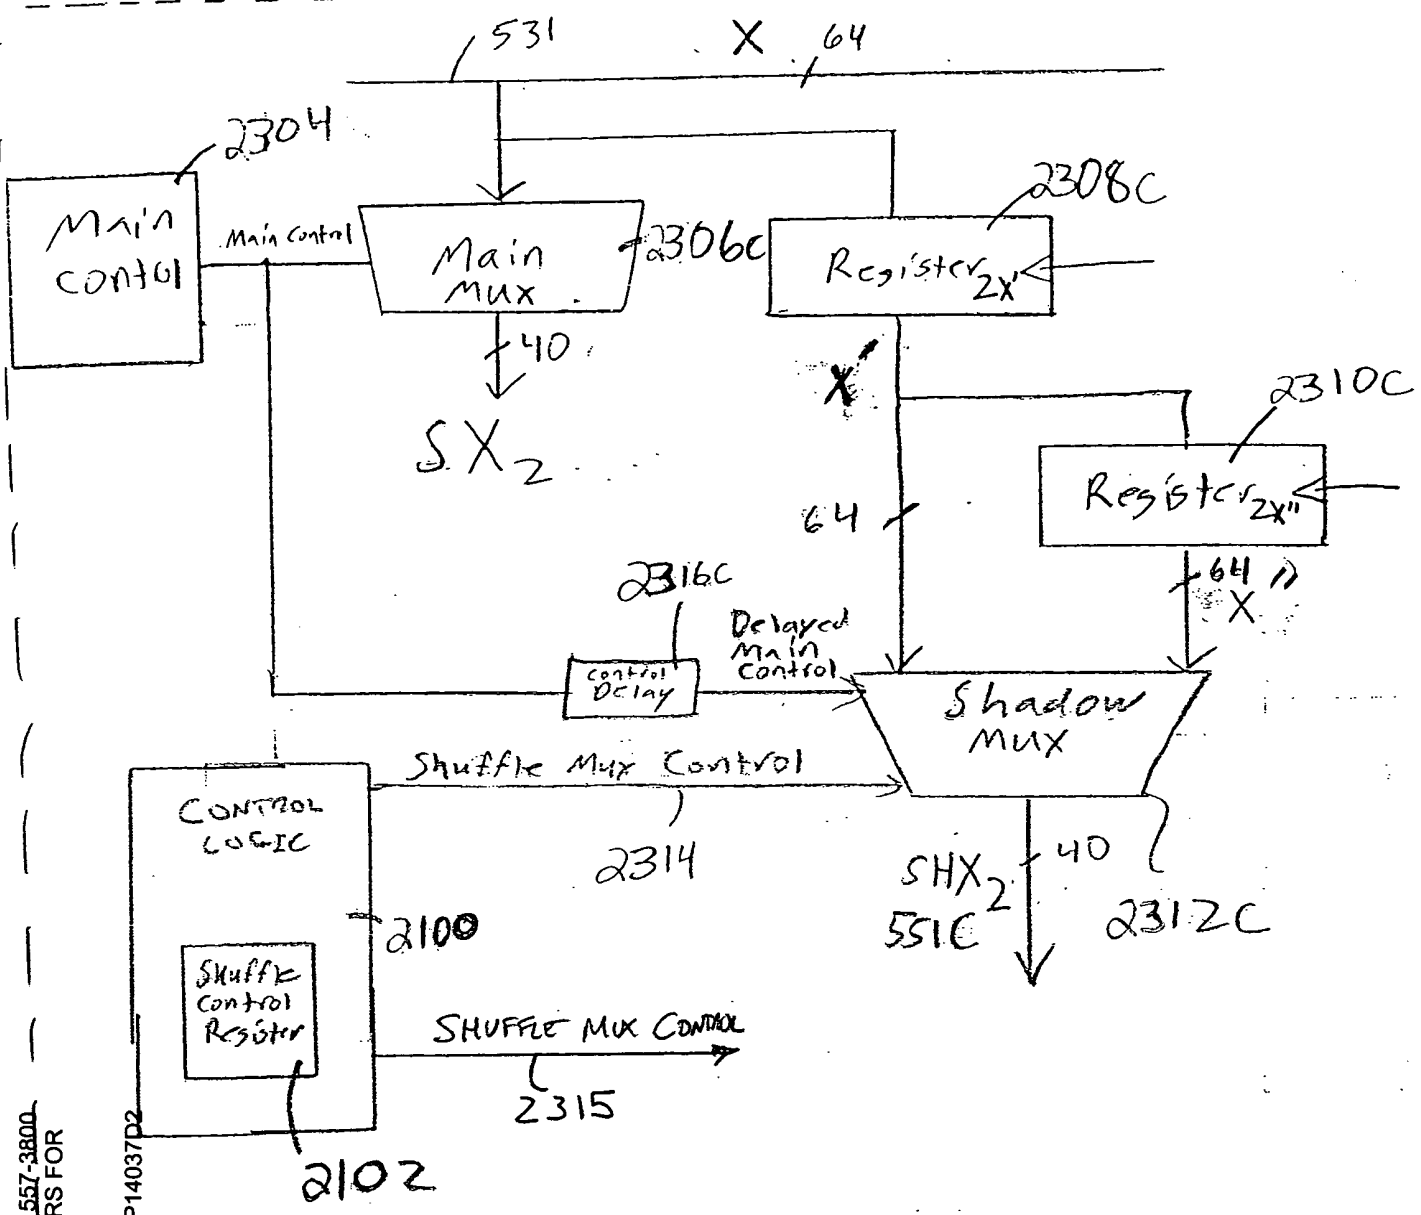 531
X
64
2304
Main
Control
Main Control
Main
Mux
2306C
2308C
Register 2X'
40
SX2
X'
2310C
Register 2X"
64
64
X"
2316C
Control
Delay
Delayed
Main
Control
Shadow
Mux
Shuffle Mux Control
2314
CONTROL
LOGIC
2100
SHX2
551C
40
2312C
Shuffle
Control
Register
SHUFFLE MUX CONTROL
2315
2102
557-3800
RS FOR
P14037D2